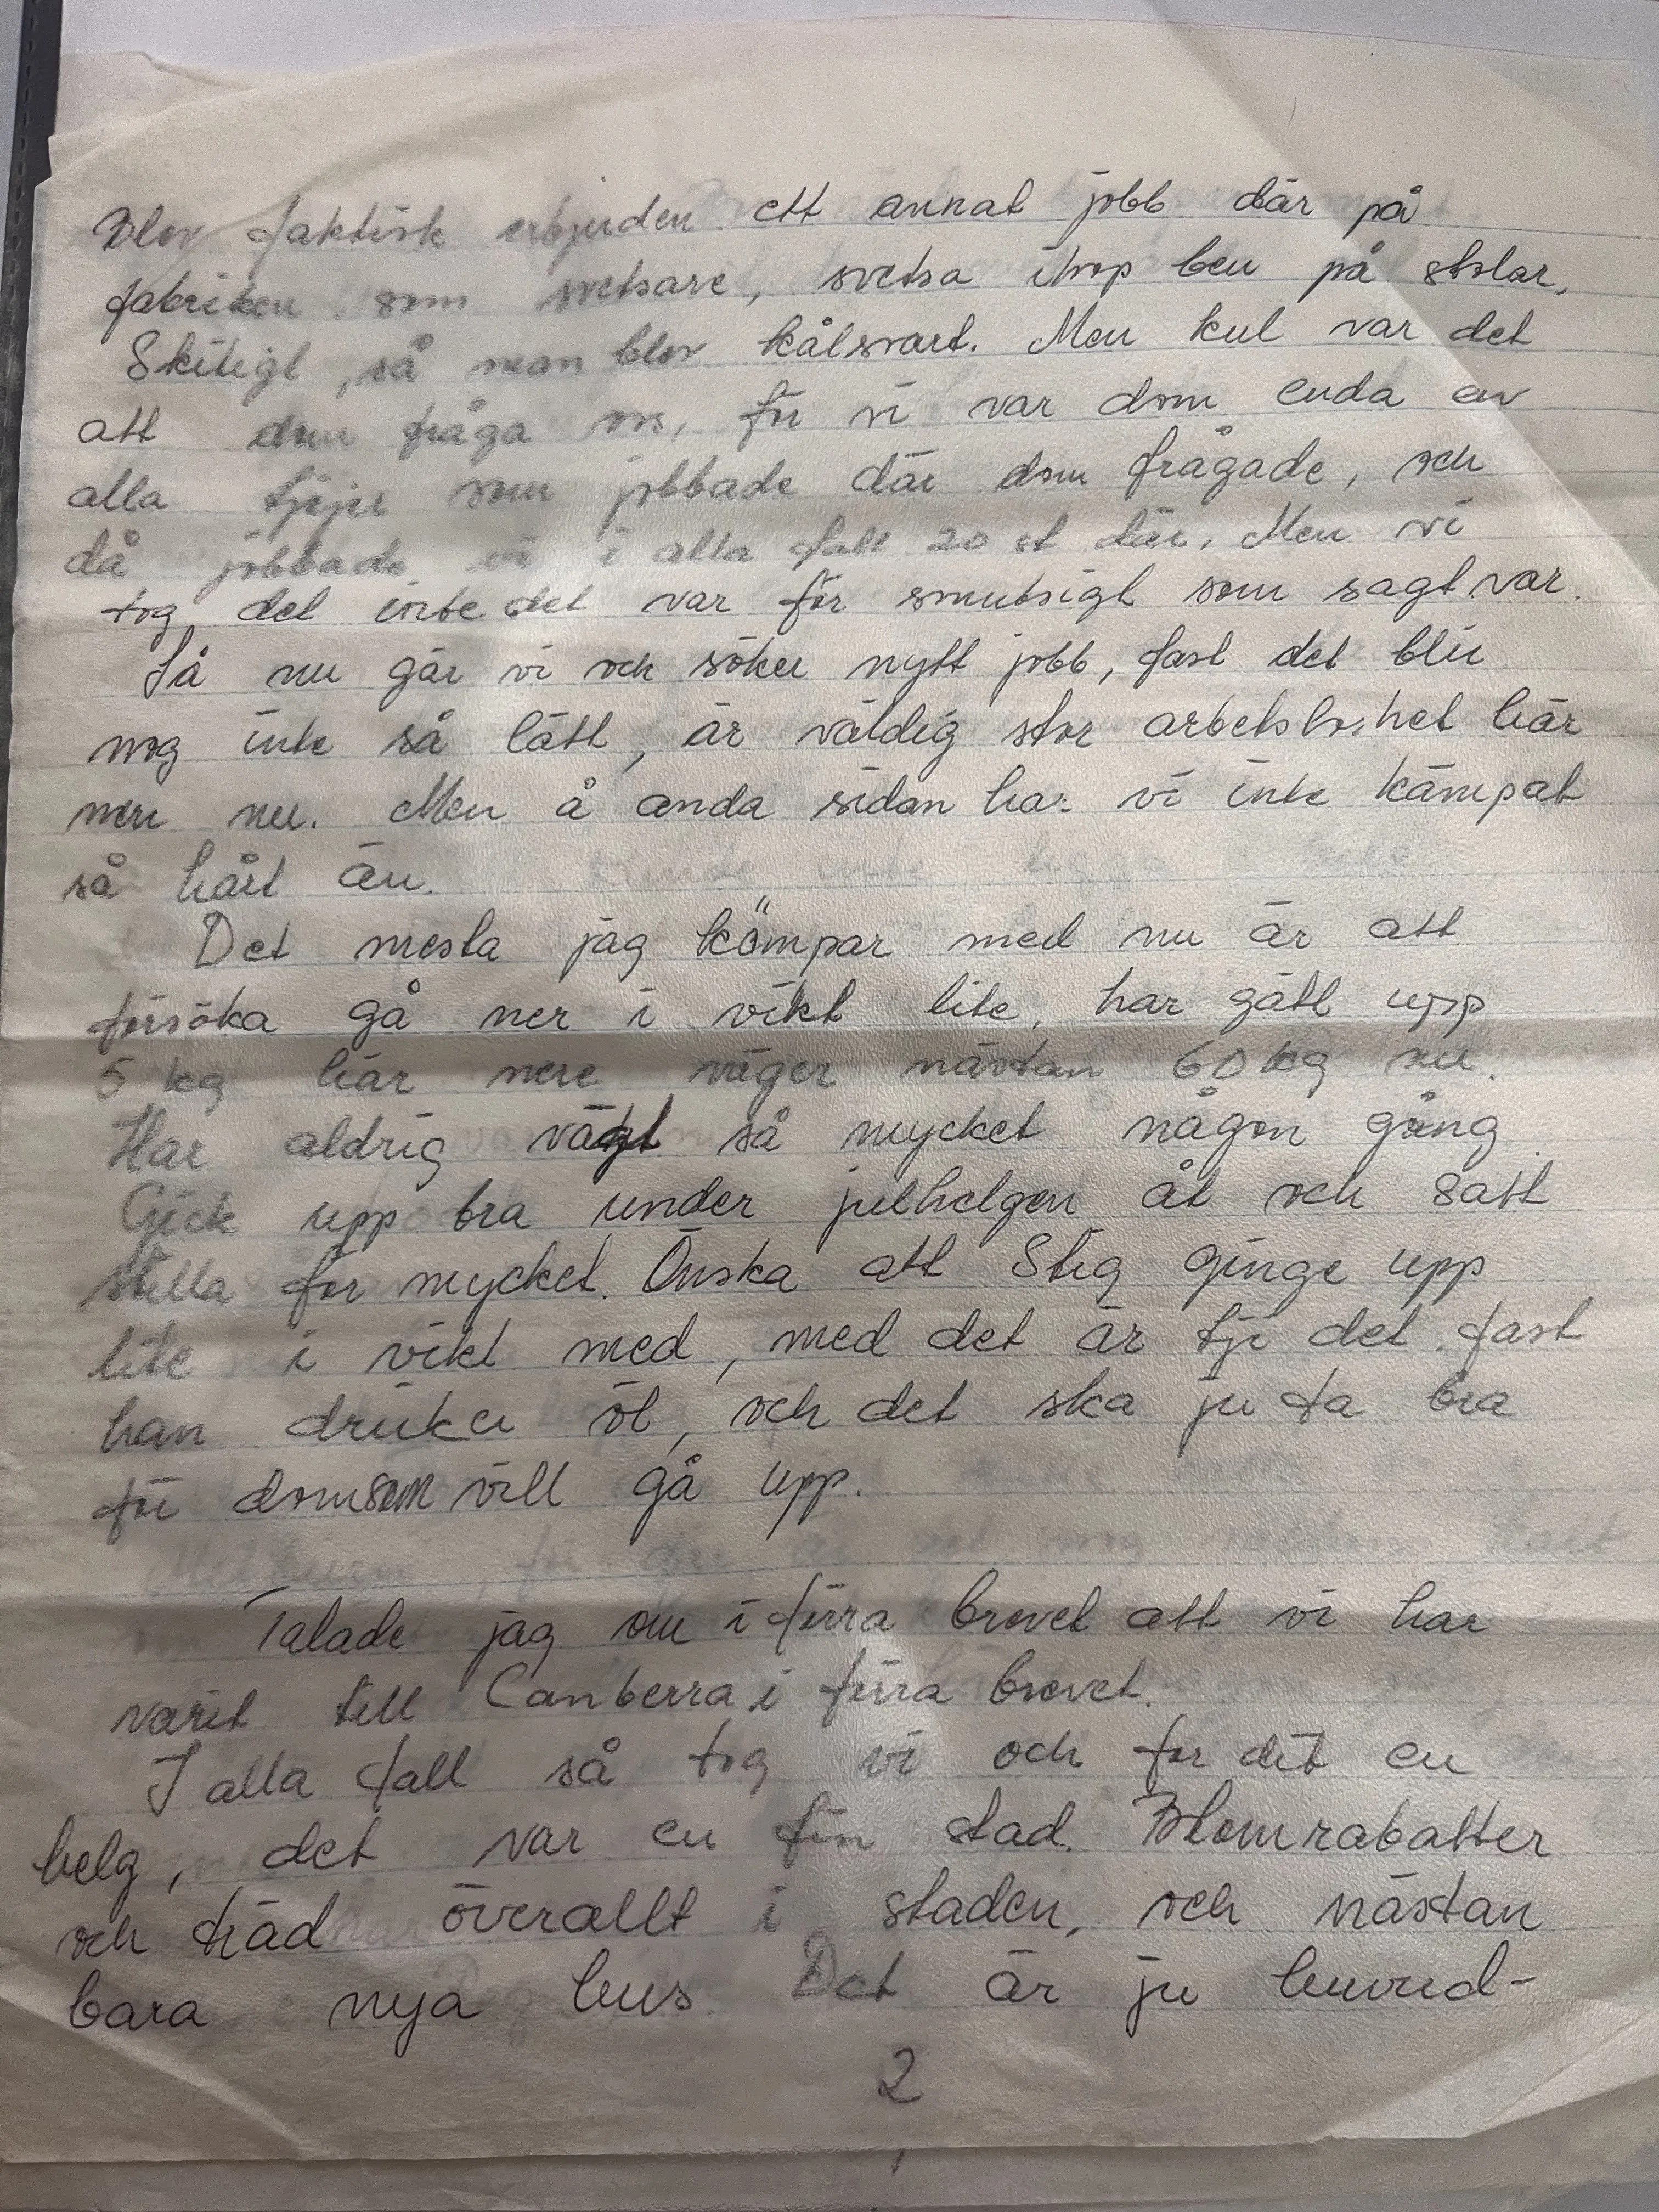 Blev faktisk erbjuden ett annat jobb där på
fabriken som svetsare, svetsa ihop ben på stolar,
Skitigt, så man blev kålsvart. Men kul var det
att dom fråga oss, för vi var dom enda av
alla tjejer som jobbade där dom frågade, och
då jobbade vi i alla fall 20 st där. Men vi
tog det inte det var för smutsigt som sagt var.
Så nu går vi och söker nytt jobb, fast det blir
nog inte så lätt, är väldig stor arbetslöshet här
nere nu. Men å anda sidan har vi inte kämpat
så hårt än.
Det mesta jag kämpar med nu är att
försöka gå ner i vikt lite, har gått upp
5 kg här nere väger nästan 60 kg nu.
Har aldrig vägt så mycket någon gång.
Gick upp bra under julhelgen åt och satt
stilla för mycket. Önska att Stig ginge upp
lite i vikt med, med det är tji det. fast
han dricker öl, och det ska ju ta bra
för dom som vill gå upp.
Talade jag om i förra brevet att vi har
varit till Canberra i förra brevet.
I alla fall så tog vi och for dit en
helg, det var en fin stad. Blomrabatter
och träd överallt i staden, och nästan
bara nya hus. Det är ju huvud-
2